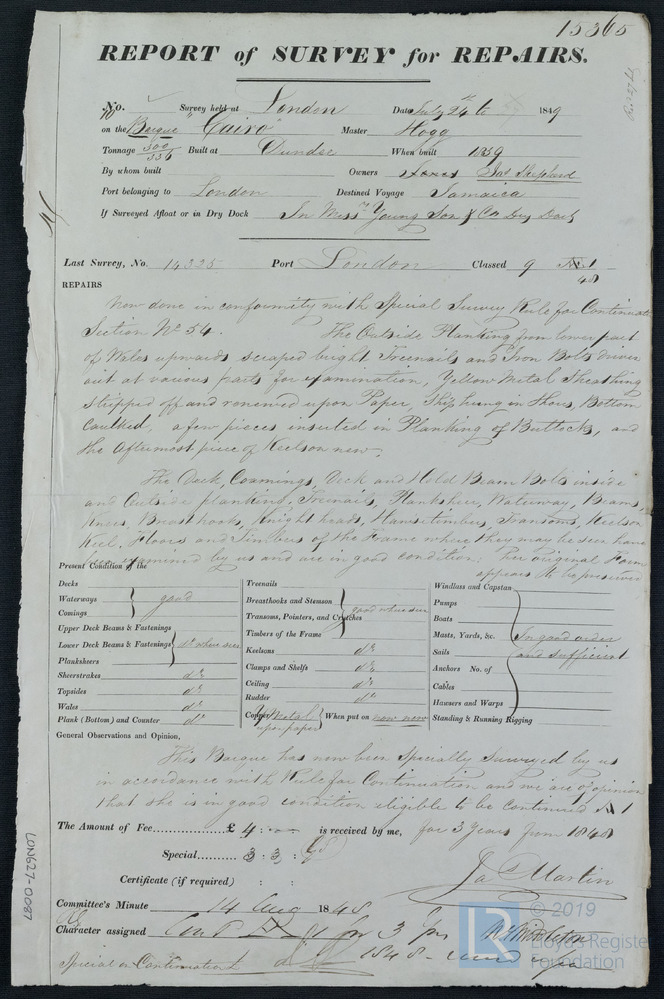 15365
REPORT of SURVEY for REPAIRS.
No. Survey held at London Date July 24 to 1849
on the Barque "Cairo" Master Hogg
Tonnage 300/336 Built at Dundee When built 1839
By whom built Owners Jas Shepherd
Port belonging to London Destined Voyage Jamaica
If Surveyed Afloat or in Dry Dock In Messrs Young Son & Co Dry Dock
Last Survey, No. 14335 Port London Classed 9 A 1
48
REPAIRS
Now done in conformity with Special Survey Rule for Continuation
Section No 54. The Outside Planking from lower part
of Wales upwards scraped bright Treenails and Iron Bolts driven
out at various parts for examination, Yellow Metal Sheathing
stripped off and renewed upon Paper, Ship hung in Shores, Bottom
Caulked, a few pieces inserted in Planking of Buttocks, and
the aftermost piece of Keelson new.
The Deck, Coamings, Deck and Hold Beam Bolts inside
and Outside planking, Treenails, Planksheer, Waterway, Beams,
Knees, Breasthook, Knightheads, Hawsetimbers, Transoms, Keelson
Keel, Floors and Timbers of the Frame where they may be seen have
been examined by us and are in good condition. Her original Form
appears to be preserved
Present Condition of the
Decks
Waterways good
Comings
Upper Deck Beams & Fastenings
Lower Deck Beams & Fastenings do where seen
Planksheers
Sheerstrakes do
Topsides do
Wales do
Plank (Bottom) and Counter do
Treenails
Breasthooks and Stemson good where seen
Transoms, Pointers, and Crutches
Timbers of the Frame
Keelsons do
Clamps and Shelfs do
Ceiling do
Rudder do
Copper Y Metal upon paper When put on now new
Windlass and Capstan
Pumps
Boats
Masts, Yards, &c. In good order
Sails and sufficient
Anchors No. of
Cables
Hawsers and Warps
Standing & Running Rigging
General Observations and Opinion,
This Barque has now been Specially Surveyed by us
in accordance with Rule for Continuation and we are of opinion
that she is in good condition eligible to be Continued A 1
The Amount of Fee £ 4 : - - is received by me, for 3 Years from 1848
Special 3 : 3 :
Certificate (if required) : :
Jas Martin
Committee's Minute 14 Aug 1848
Character assigned Cont A 1 for 3 yrs
Special on Continuation 1848
LON627-0087
LR
© 2019
Lloyd's Register
Foundation